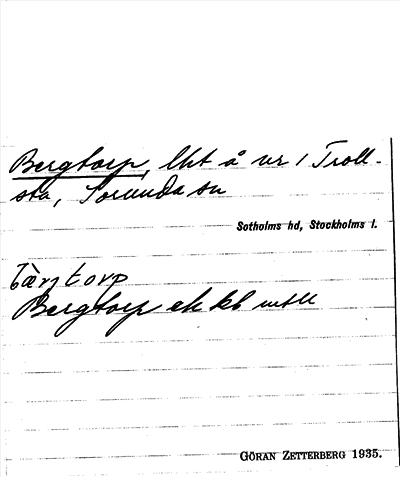 Bergtorp, lht å nr 1 Troll-
sta, Sorunda sn
Sotholms hd, Stockholms l.
bàrjtorp
Bergtorp ek kb
GÖRAN ZETTERBERG 1935.